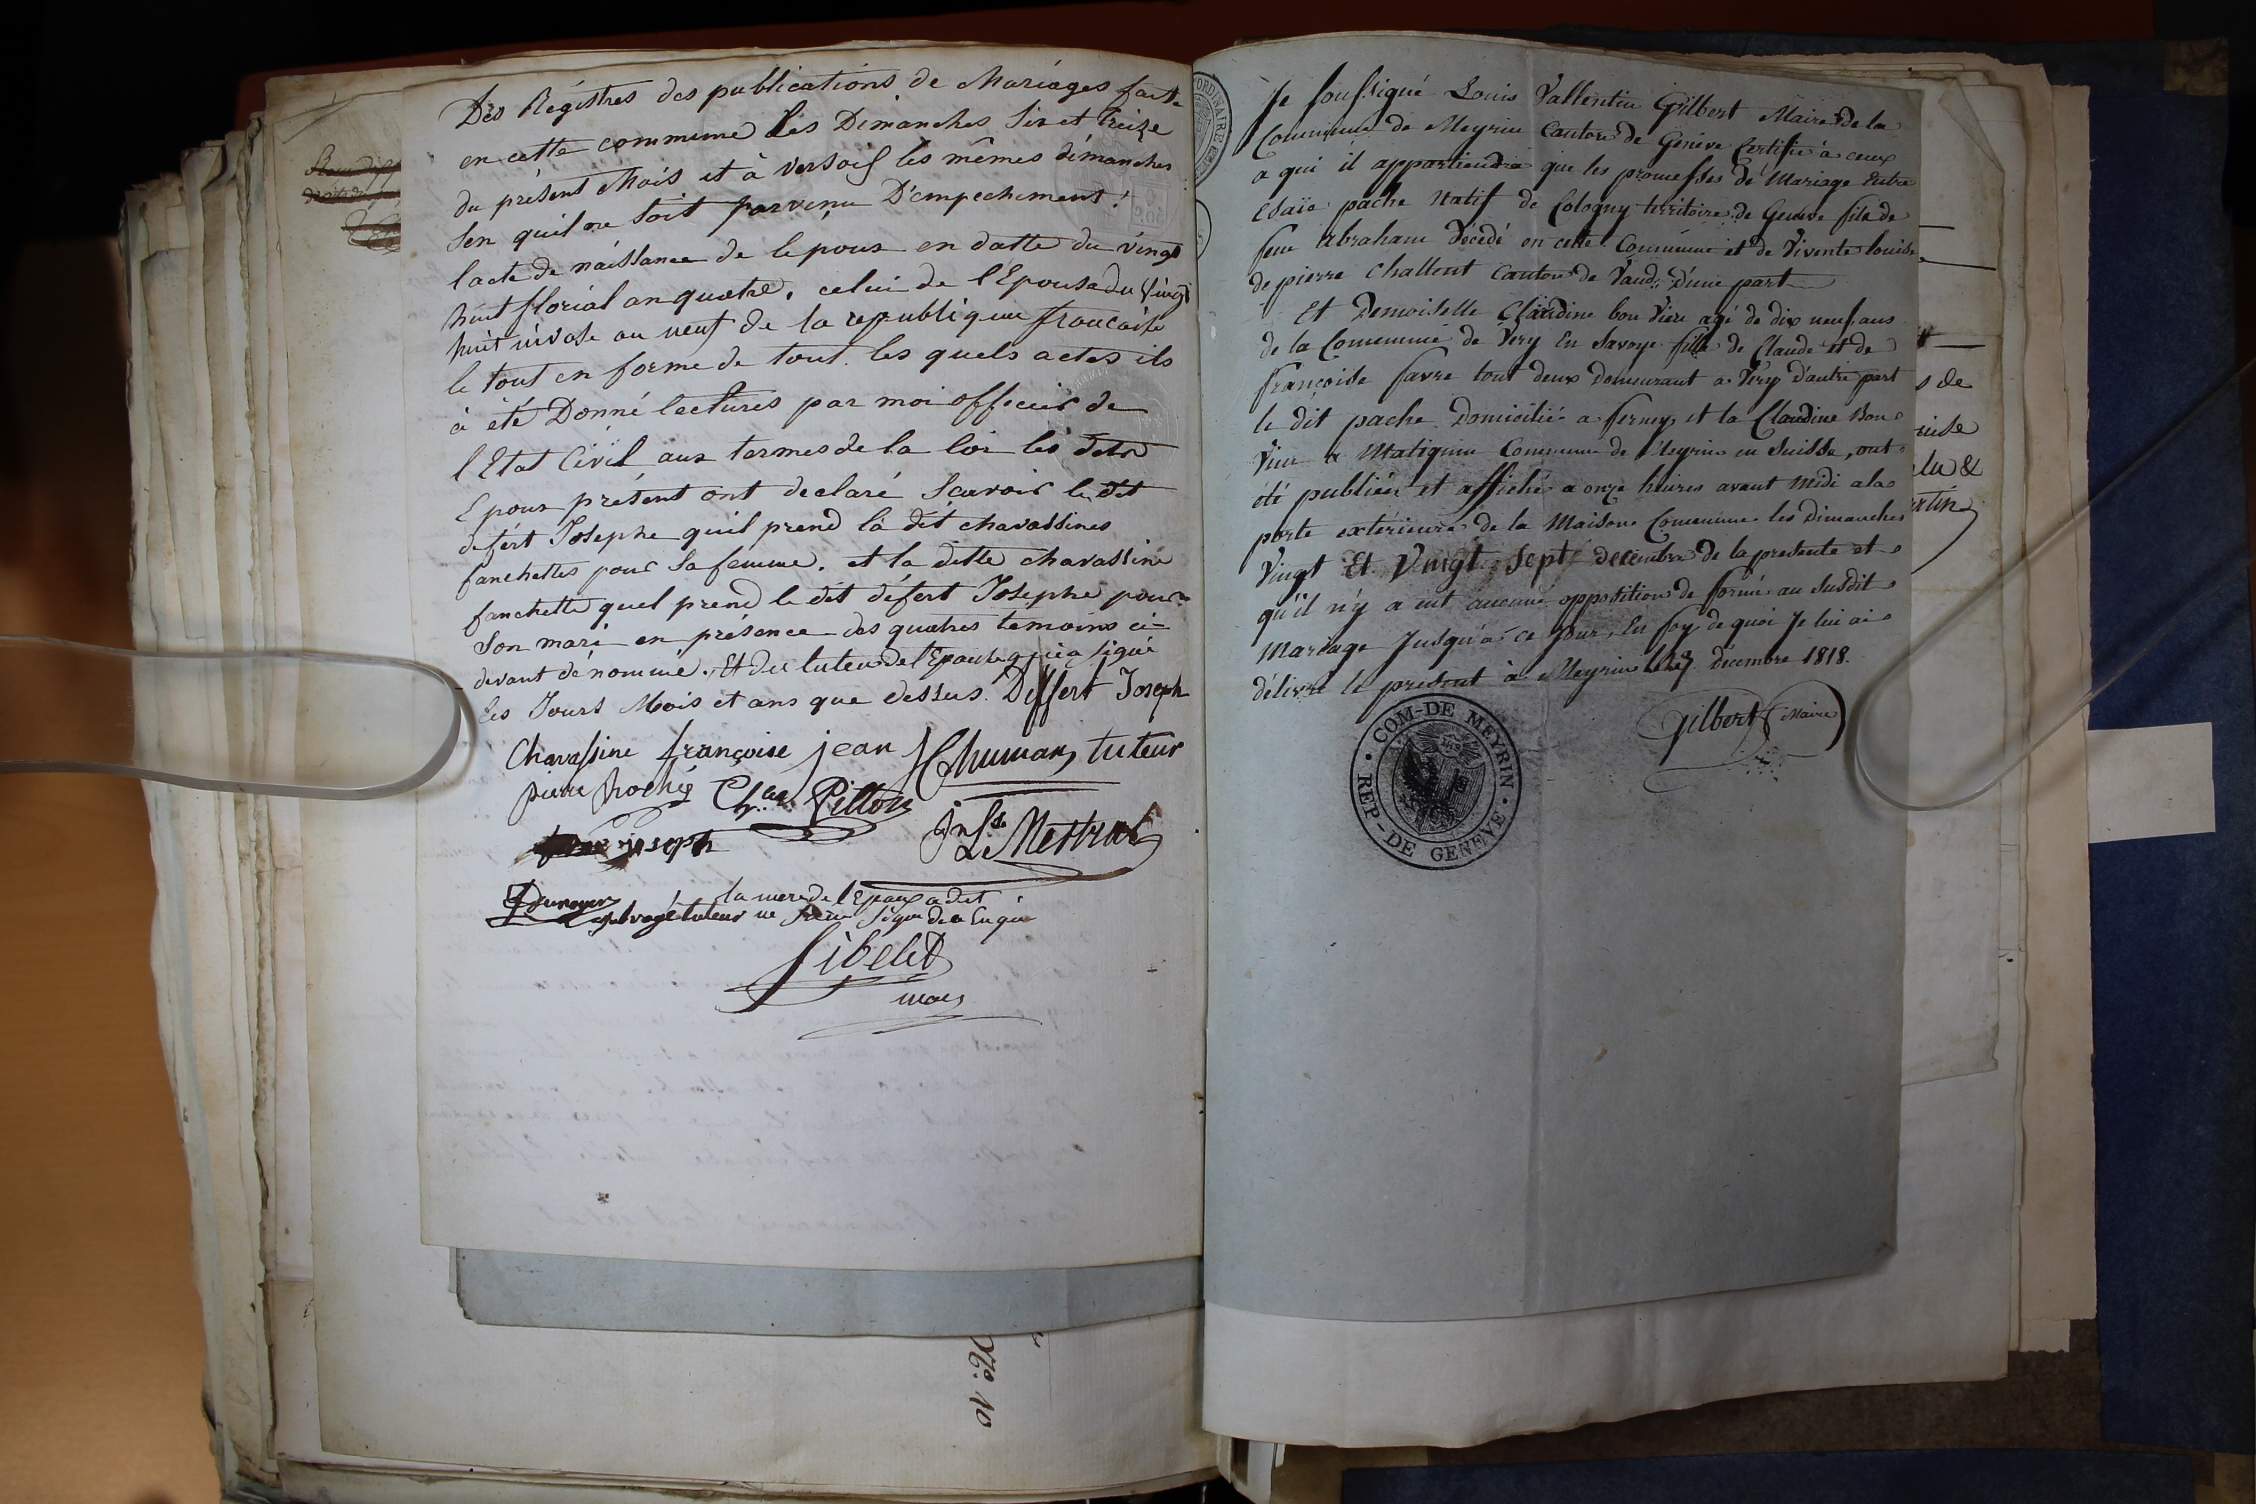 Des Régistres des publications de Mariages faite
en cette commune Les Dimanches Six et treize
du présent Mois et à versoix les mêmes dimanches
sen quil ne soit parvenu D'empechement.
lacte de naissance de lepoux en datte du vingt
huit florial an quatre. celui de l'Epouse du vingt
huit nivose an neuf de la republique francaise
le tout en forme de tout. les quels actes ils
à été Donné lectures par moi officier de
l'Etat Civil aux termes de la loi les dits
Epoux présent ont declaré Scavoir le dit
defert Josephe quil prend la dit chavassines
fanchettes pour sa femme. et la ditte chavassine
fanchette quel prend le dit défert Josephe pour
Son mari en présence des quatres temoins ci-
devant dénommé. Et du tuteur de l'Epouse qui a signé
les Jours Mois et ans que dessus. Deffert Joseph
Chavassine françoise jean Chuman tuteur
pierre Chas. Pitton
joseph
Jn Ls. Mestral
Dunoyer la mere de l'Epoux a dit
subrogé tuteur ne signer de ce Enqui
Sibelet
maire
N. 20
Je soussigné Louis Vallentin Gilbert Maire de la
Commune de Meyrin Canton de Genève Certifie à ceux
a qui il appartiendra que les promesses de Mariage Entre
Esaïe pache Natif de Cologny territoire de Geneve fils de
feue Abraham Décédé en cette Commune et de Vivente louise
de pierre Challout Canton de Vaud. D'une part
Et Demoiselle Claudine bon Vieu agé de dix neuf ans
de la Commune de Véry En Savoye fille de Claude et de
françoise favre tout deux Demeurant a Véry d'autre part
le dit pache Domicilié a ferney et la Claudine Bon
Vieu a Matignin Commune de Meyrin en Suisse, ont
été publiées et affiché a onze heures avant Midi a la
porte extérieure de la Maison Commune les Dimanches
Vingt Et Vingt Sept decembre de la presente et
qu'il n'y a eut aucune opposition de formé au susdit
Mariage Jusqu'a ce jour, En foy de quoi Je lui ai
délivré le present à Meyrin le 27 décembre 1818.
Gilbert (Maire)
COM-DE MEYRIN
REP-DE GENEVE